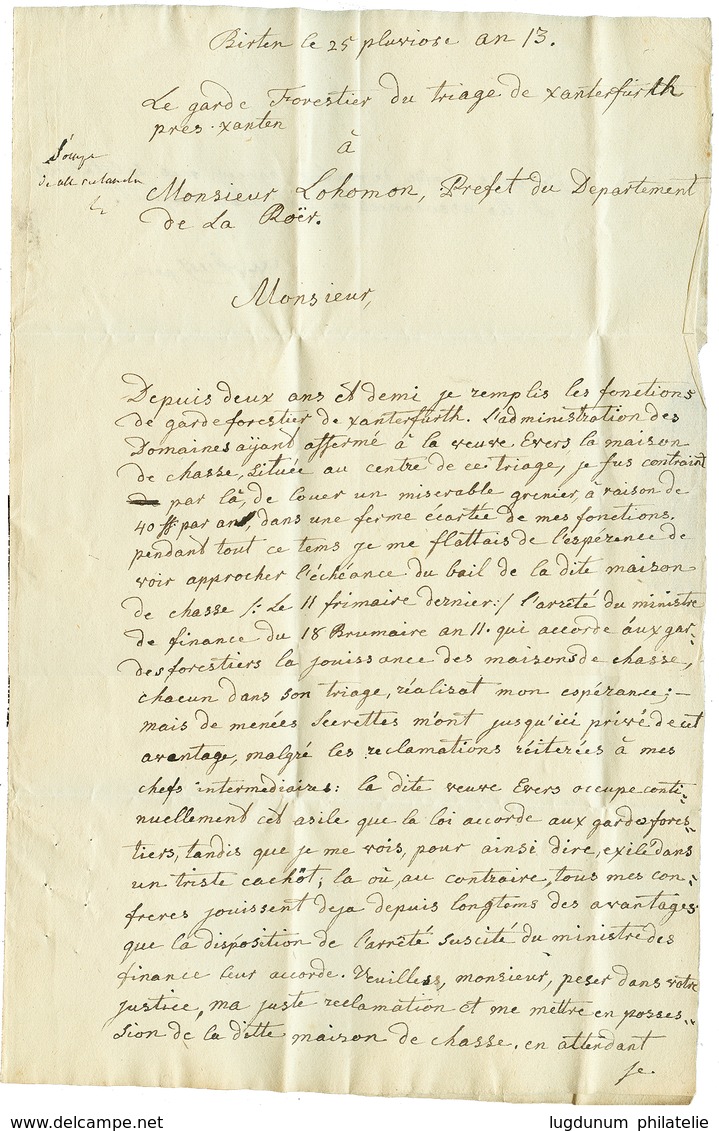 Birten le 25 pluviose an 13.
Le garde Forestier du triage de xanterfürth
pres xanten
à
Monsieur Lohomon, Prefet du Departement
de La Roër.
Monsieur,
Depuis deux ans et demi je remplis les fonctions
de garde forestier de xanterfürth. L'administration des
Domaines aÿant affermé à la veuve Evers la maison
de chasse, située au centre de ce triage, je fus contraint
par là de louer un miserable grenier, à raison de
40 ff. par an, dans une ferme écartée de mes fonctions.
pendant tout ce tems je me flattais de l'espérence de
voir approcher l'échéance du bail de la dite maison
de chasse /: Le 11 frimaire dernier :/ l'arrêté du ministre
de finance du 18 Brumaire an 11. qui accorde áux gar-
des forestiers la jouissance des maisons de chasse,
chacun dans son triage, réalisat mon espérance; —
mais de menées secrettes m'ont jusqu'ici privé de cet
avantage, malgré les reclamations réiterées à mes
chefs intermediaires: la dite veuve Evers occupe conti-
nuellement cet asile que la loi accorde aux gardes fores-
tiers, tandis que je me vois, pour ainsi dire, exilé dans
un triste cachôt; la où, au contraire, tous mes con-
freres jouissent deja depuis longtems des avantages
que la disposition de l'arrêté suscité du ministre des
finance leur accorde. Veuilless, monsieur, peser dans votre
justice, ma juste reclamation et me mettre en posses-
sion de la ditte maison de chasse. en attendant
je.
www.delcampe.net
lugdunum philatelie